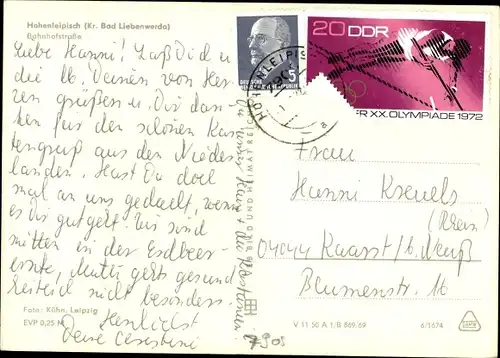 Hohenleipisch (Kr. Bad Liebenwerda)
Bahnhofstraße
Liebe Hanni! Laß Dich u.
die lb. Deinen von Her-
zen grüßen u. Dir dan-
ken für den schönen Kar-
tengruß aus den Nieder-
landen. Hast Du doch
mal an uns gedacht, wenn
es Dir gut geht. Wir sind
mitten in der Erdbeer-
ernte, Mutti gehts gesund-
heitlich nicht besonders.
Herzlichst
Deine
Foto: Kühn, Leipzig
EVP 0,25 M
BILD UND HEIMAT REI
DEUTSCHE
5
HOHENLEIPIS
20 DDR
ER XX. OLYMPIADE 1972
Frau
Hanni
(Rhein)
04044 Kaarst / b. Neuß
Blumenstr. 16
V 11 50 A 1/B 869/69
6/1674